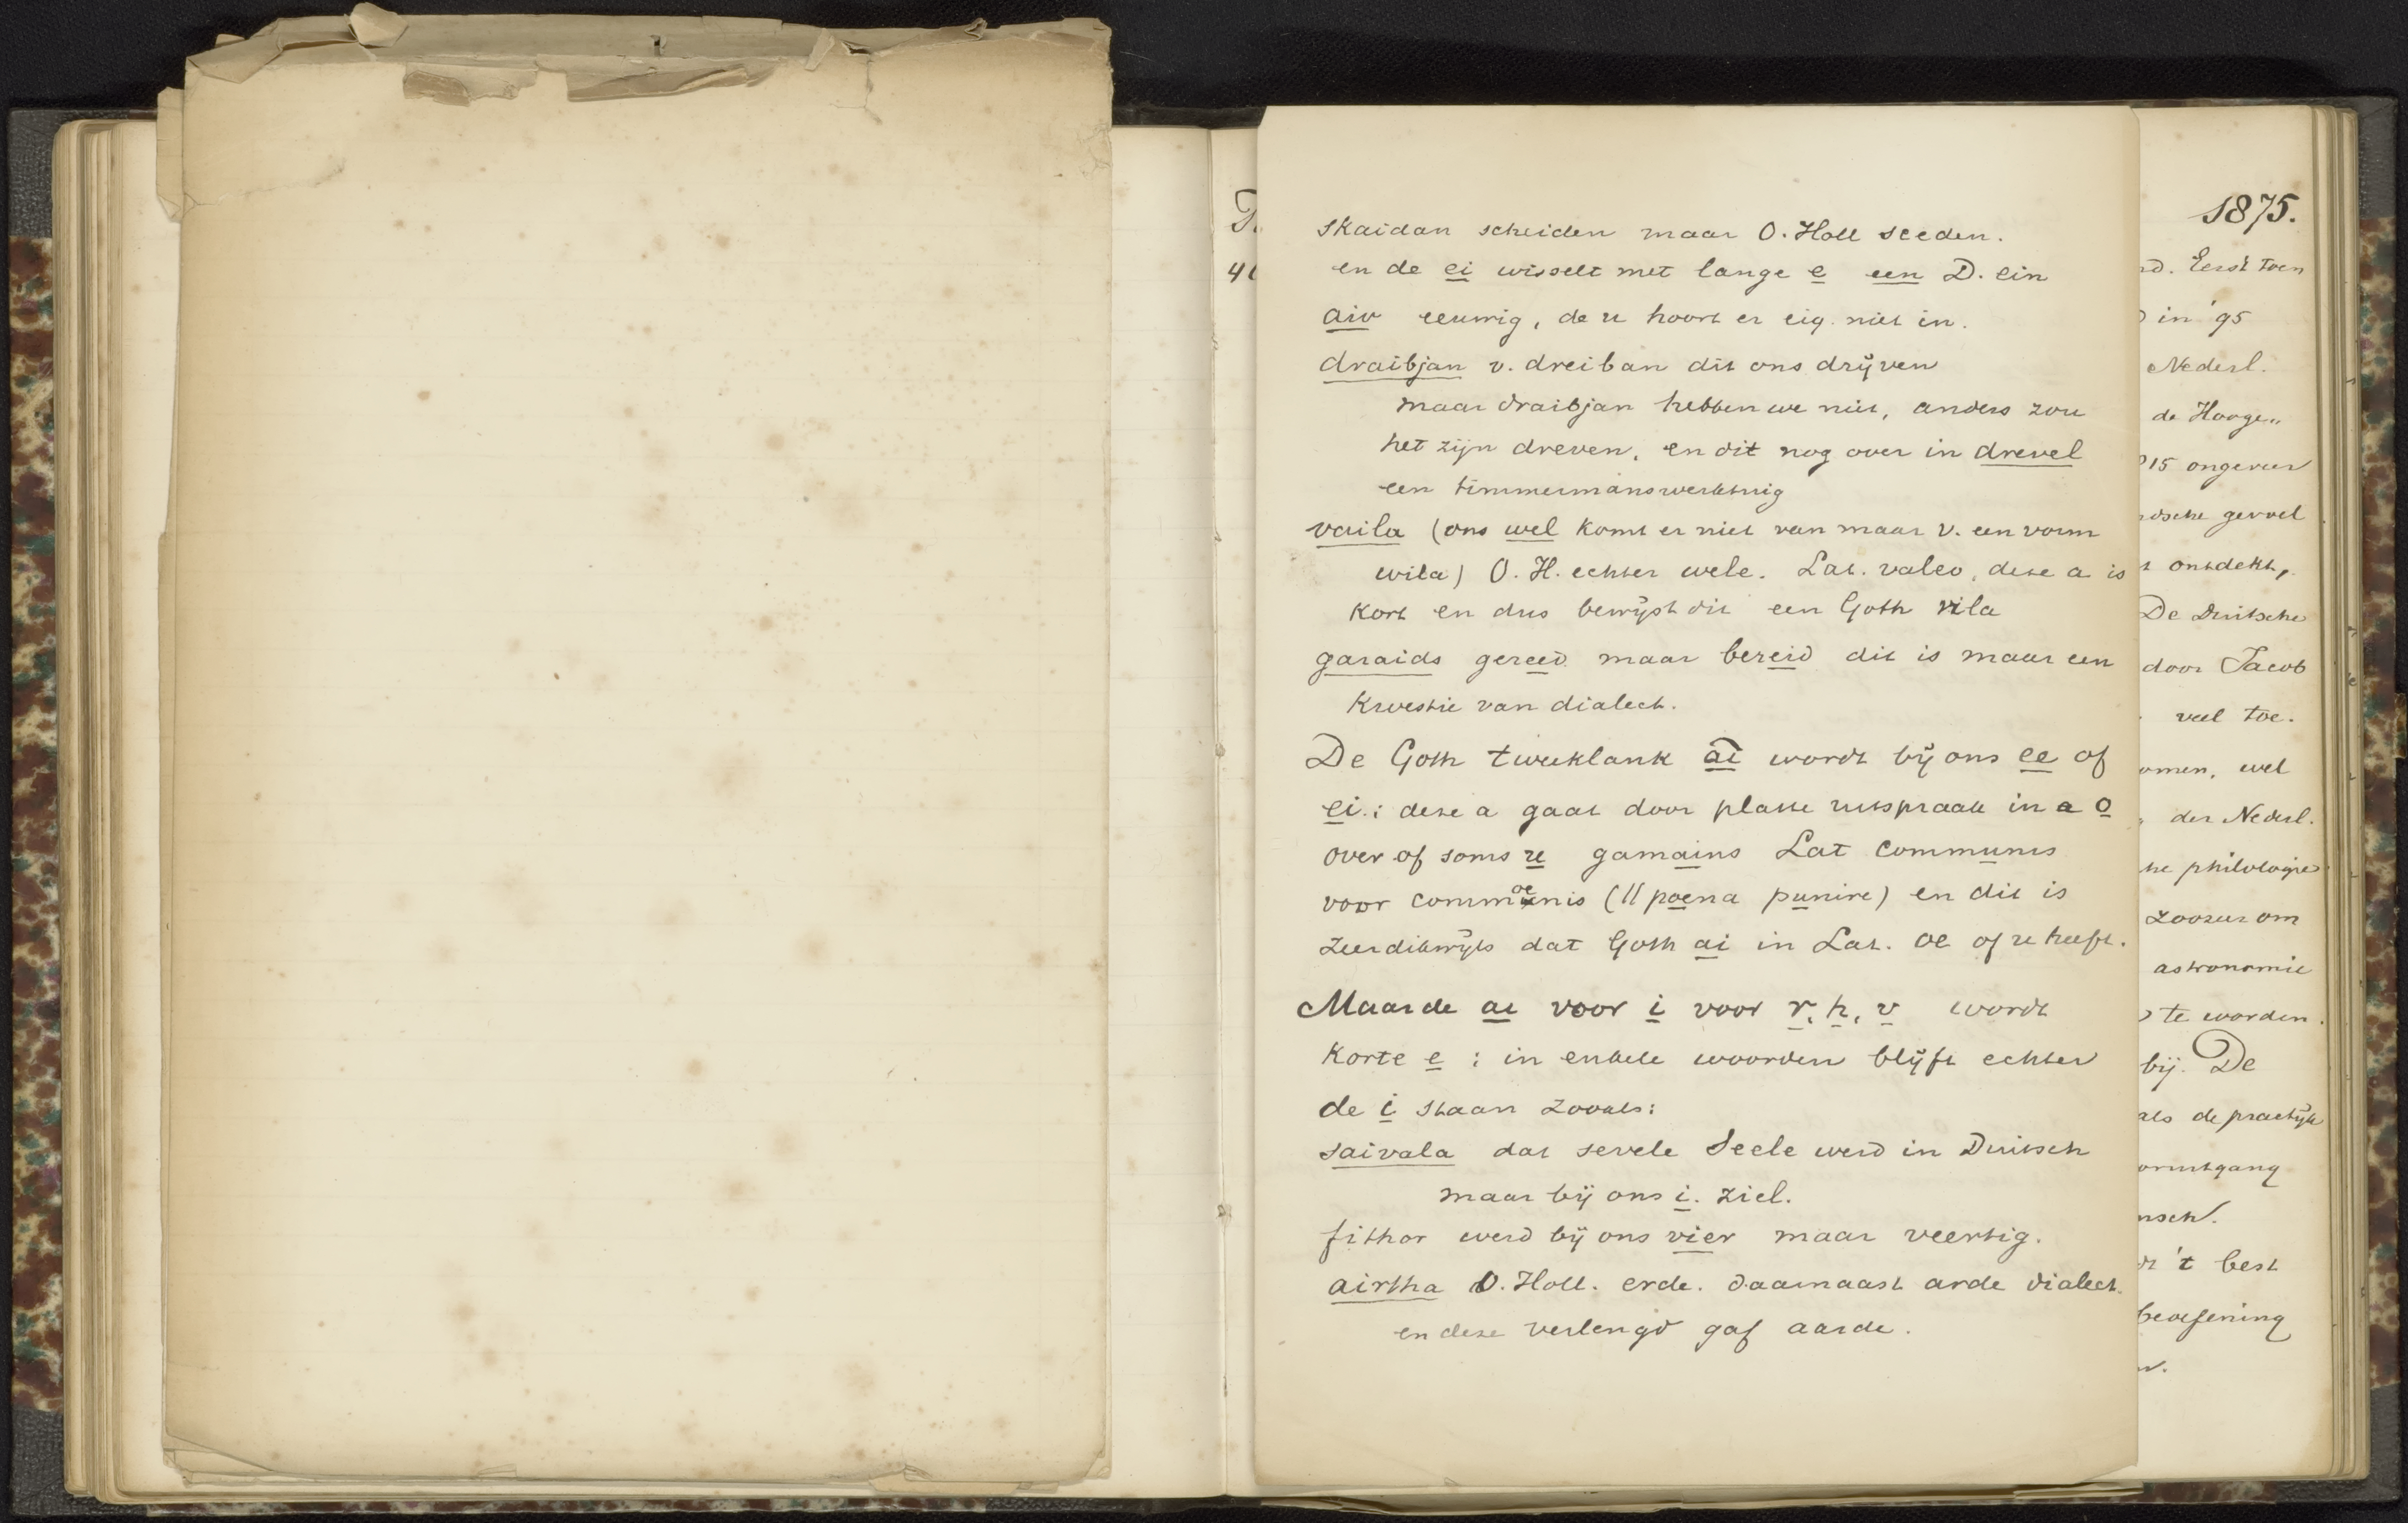 skaidan scheiden maar O. Holl sceden.
en de ei wisselt met lange e een D. ein
aiv eeuwig, de u hoort er eig. niet in.
draibjan v. dreiban dit ons drijven
maar draibjan hebben we niet, anders zou
het zijn dreven, en dit nog over in drevel
een timmermanswerktuig
vaila (ons wel komt er niet van maar v. een vorm
wila) O. H. echter wele. Lat. valeo, deze a is
kort en dus bewijst dit een Goth vila
garaids gereed maar bereid dit is maar een
kwestie van dialect.
De Goth tweeklank ai wordt bij ons ee of
ei.: deze a gaat door platte uitspraak in a o
over of soms u gamains Lat communis
voor commoenis (ll poena punire) en dit is
zeer dikwijls dat Goth ai in Lat. oe of u heeft.
Maar de ai voor i voor r, h, v wordt
korte e : in enkele woorden blijft echter
de i staan zooals:
saivala dat sevele Seele werd in Duitsch
maar bij ons i. ziel.
fithor werd bij ons vier maar veertig.
airtha O. Holl. erde. daarnaast arde dialect.
en deze verlengd gaf aarde.
1875.
Eerst toen
in '95
Nederl.
de Hooge..
15 ongeveer
gevoel
ontdekt,
De Duitsche
door Jacob
veel toe.
wel
der Nederl.
philologie
zoozeer om
astronomie
te worden.
bij. De
als de practijk
't best
beoefening